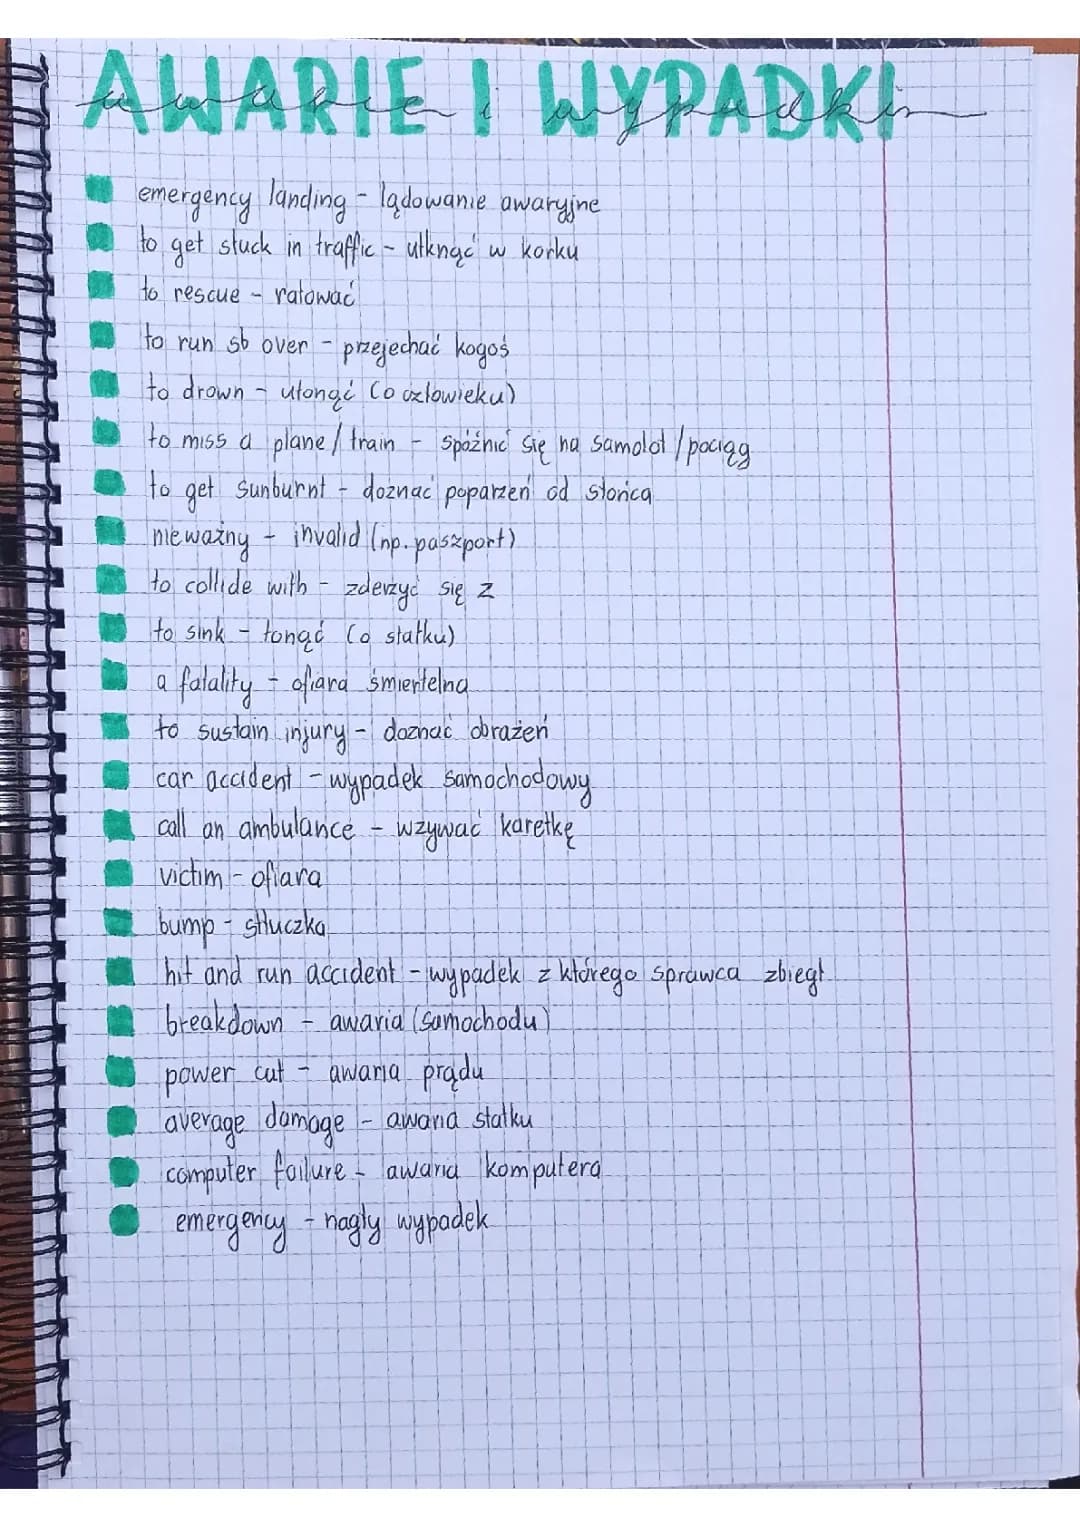 AWARIE I WYPADKI
awarie i wypadki
emergency landing - lądowanie awaryjne
to get stuck in traffic - utknąć w korku
to rescue - ratować
to run sb over - przejechać kogoś
to drown - utonąć (o człowieku)
to miss a plane / train - spóźnić się na samolot / pociąg
to get sunburnt - doznać poparzeń od słońca
nieważny - invalid (np. paszport)
to collide with - zderzyć się z
to sink - tonąć (o statku)
a fatality - ofiara śmiertelna
to sustain injury - doznać obrażeń
car accident - wypadek samochodowy
call an ambulance - wzywać karetkę
victim - ofiara
bump - stłuczka
hit and run accident - wypadek z którego sprawca zbiegł
breakdown - awaria (samochodu)
power cut - awaria prądu
average damage - awaria statku
computer failure - awaria komputera
emergency - nagły wypadek